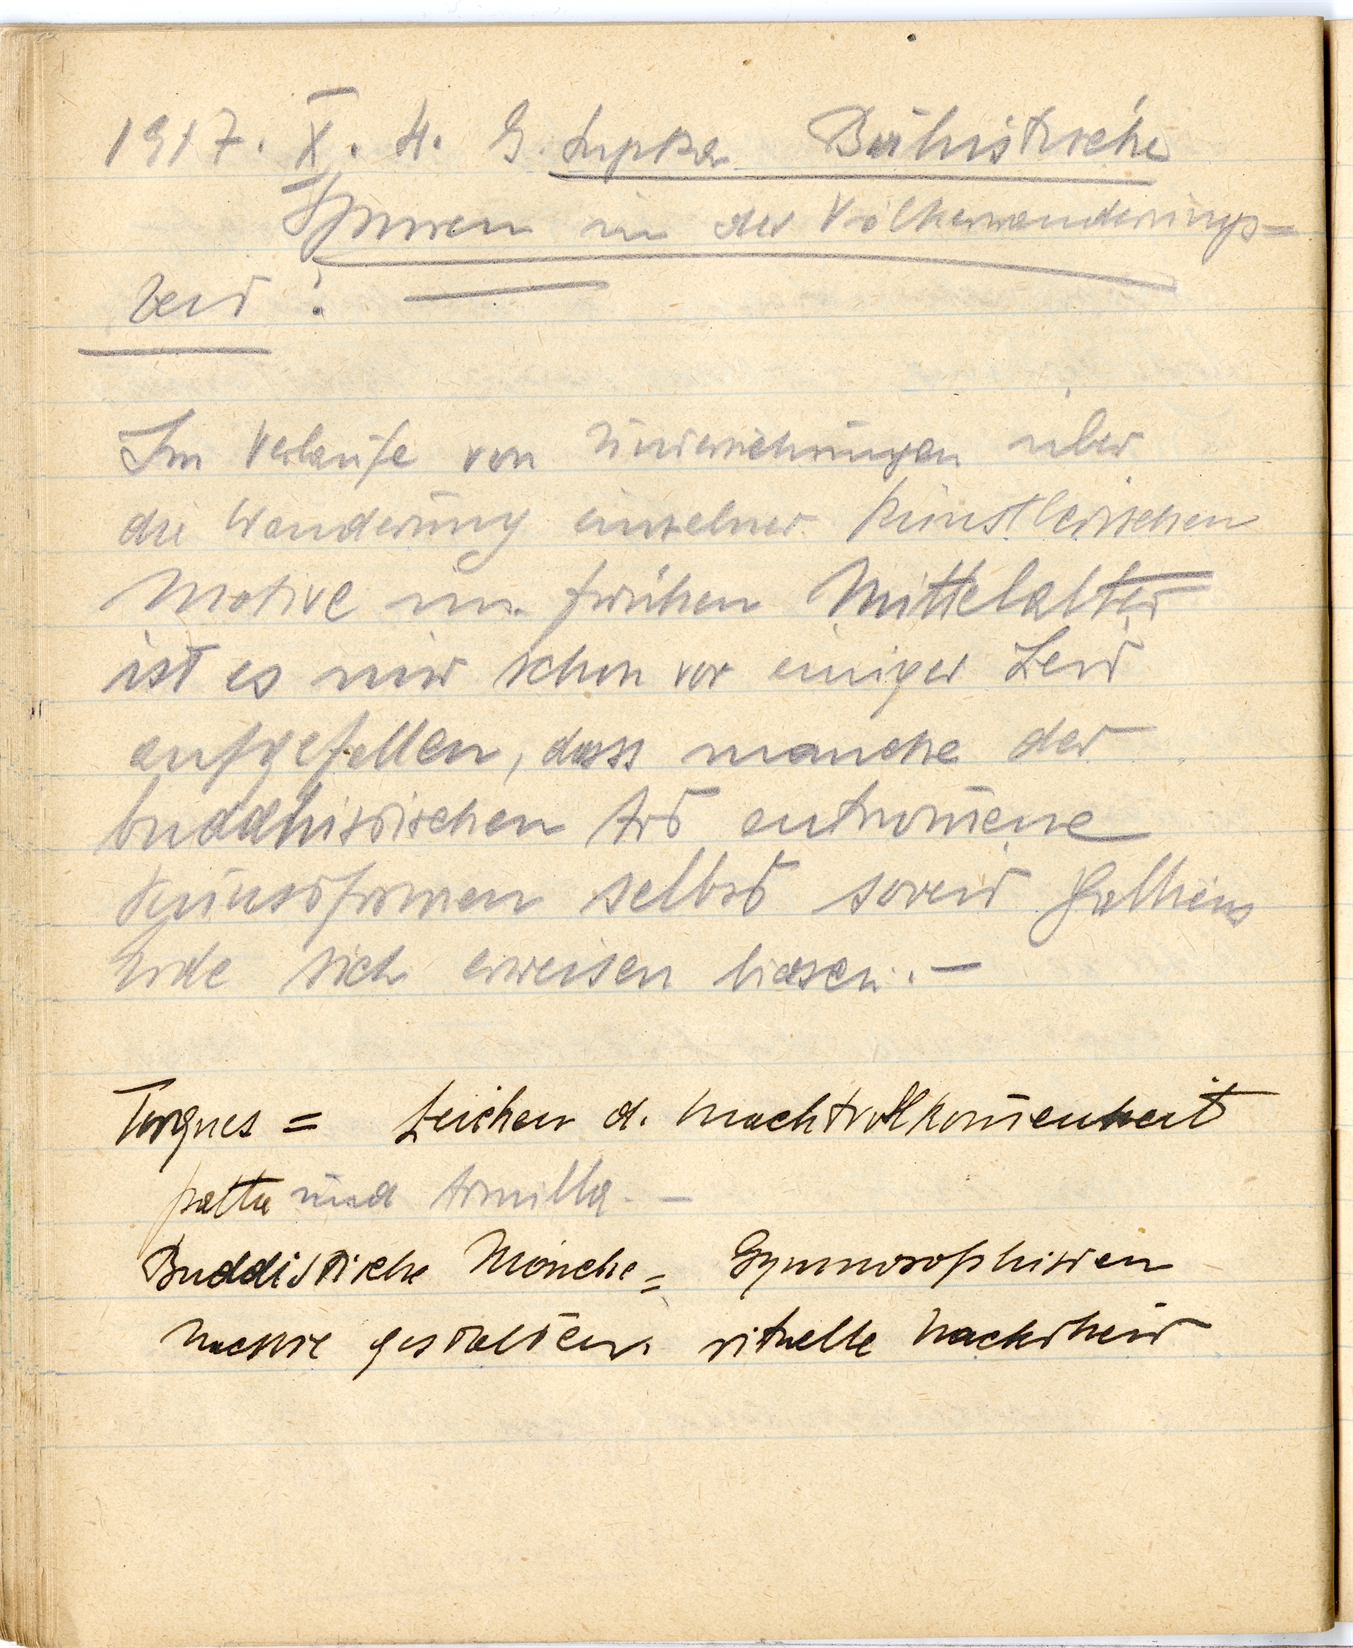 1917. X. 4. G. Supka Budhistische
Spuren in der Völkerwanderungs=
zeit:
Im Verlaufe von Untersuchungen über
die Wanderung einzelner künstlerischen
Motive im frühen Mittelalter
ist es mir schon vor einiger Zeit
aufgefallen, dass manche der
buddhistischen Art entnom̄ene
Kunstformen selbst soweit
Erde sich erweisen liesen. —
Torques = Zeichen d. Machtvollkom̄enheit
patta und Armilla. —
Buddistische Mönche = Gymnosophisten
Nackte gestalten. rituelle Nacktheit